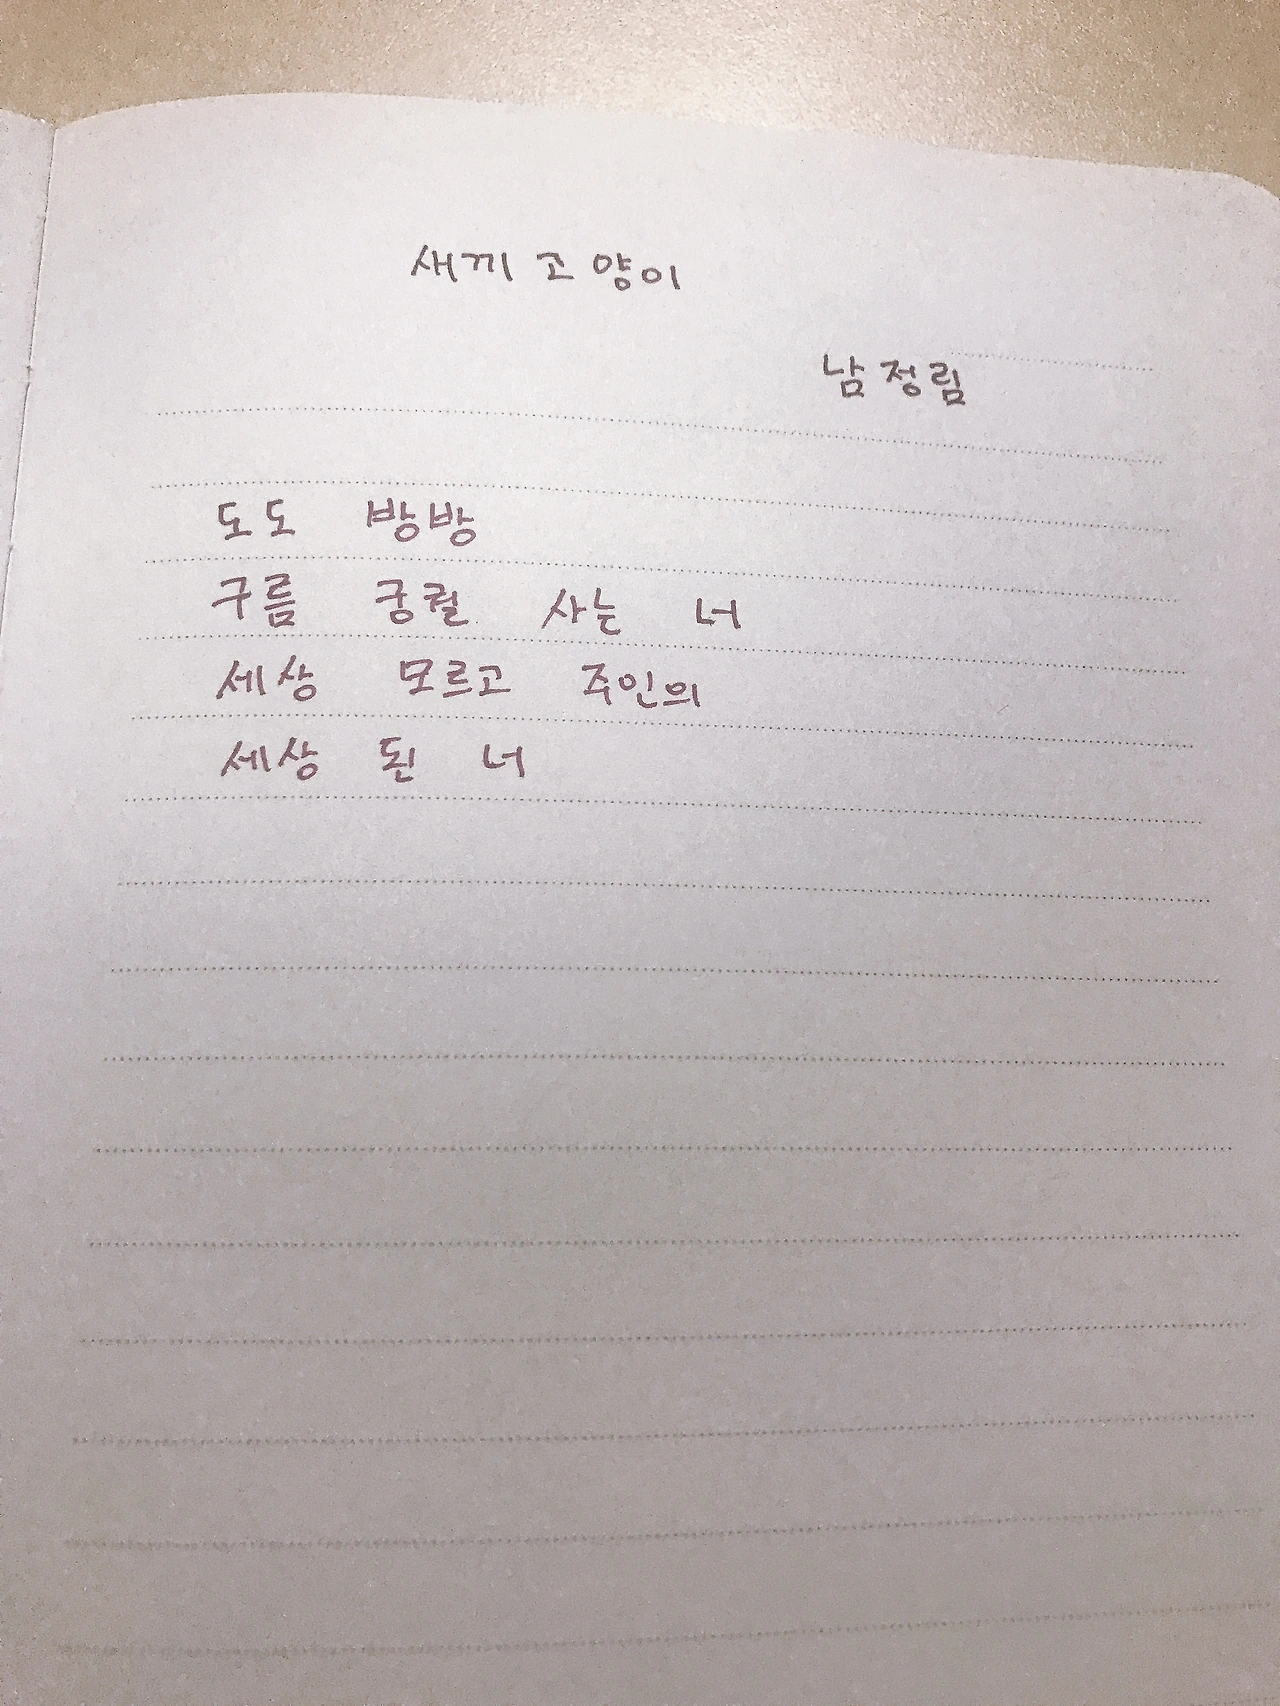 새끼 고양이
남정림
도도 방방
구름 궁궐 사는 너
세상 모르고 주인의
세상 된 너